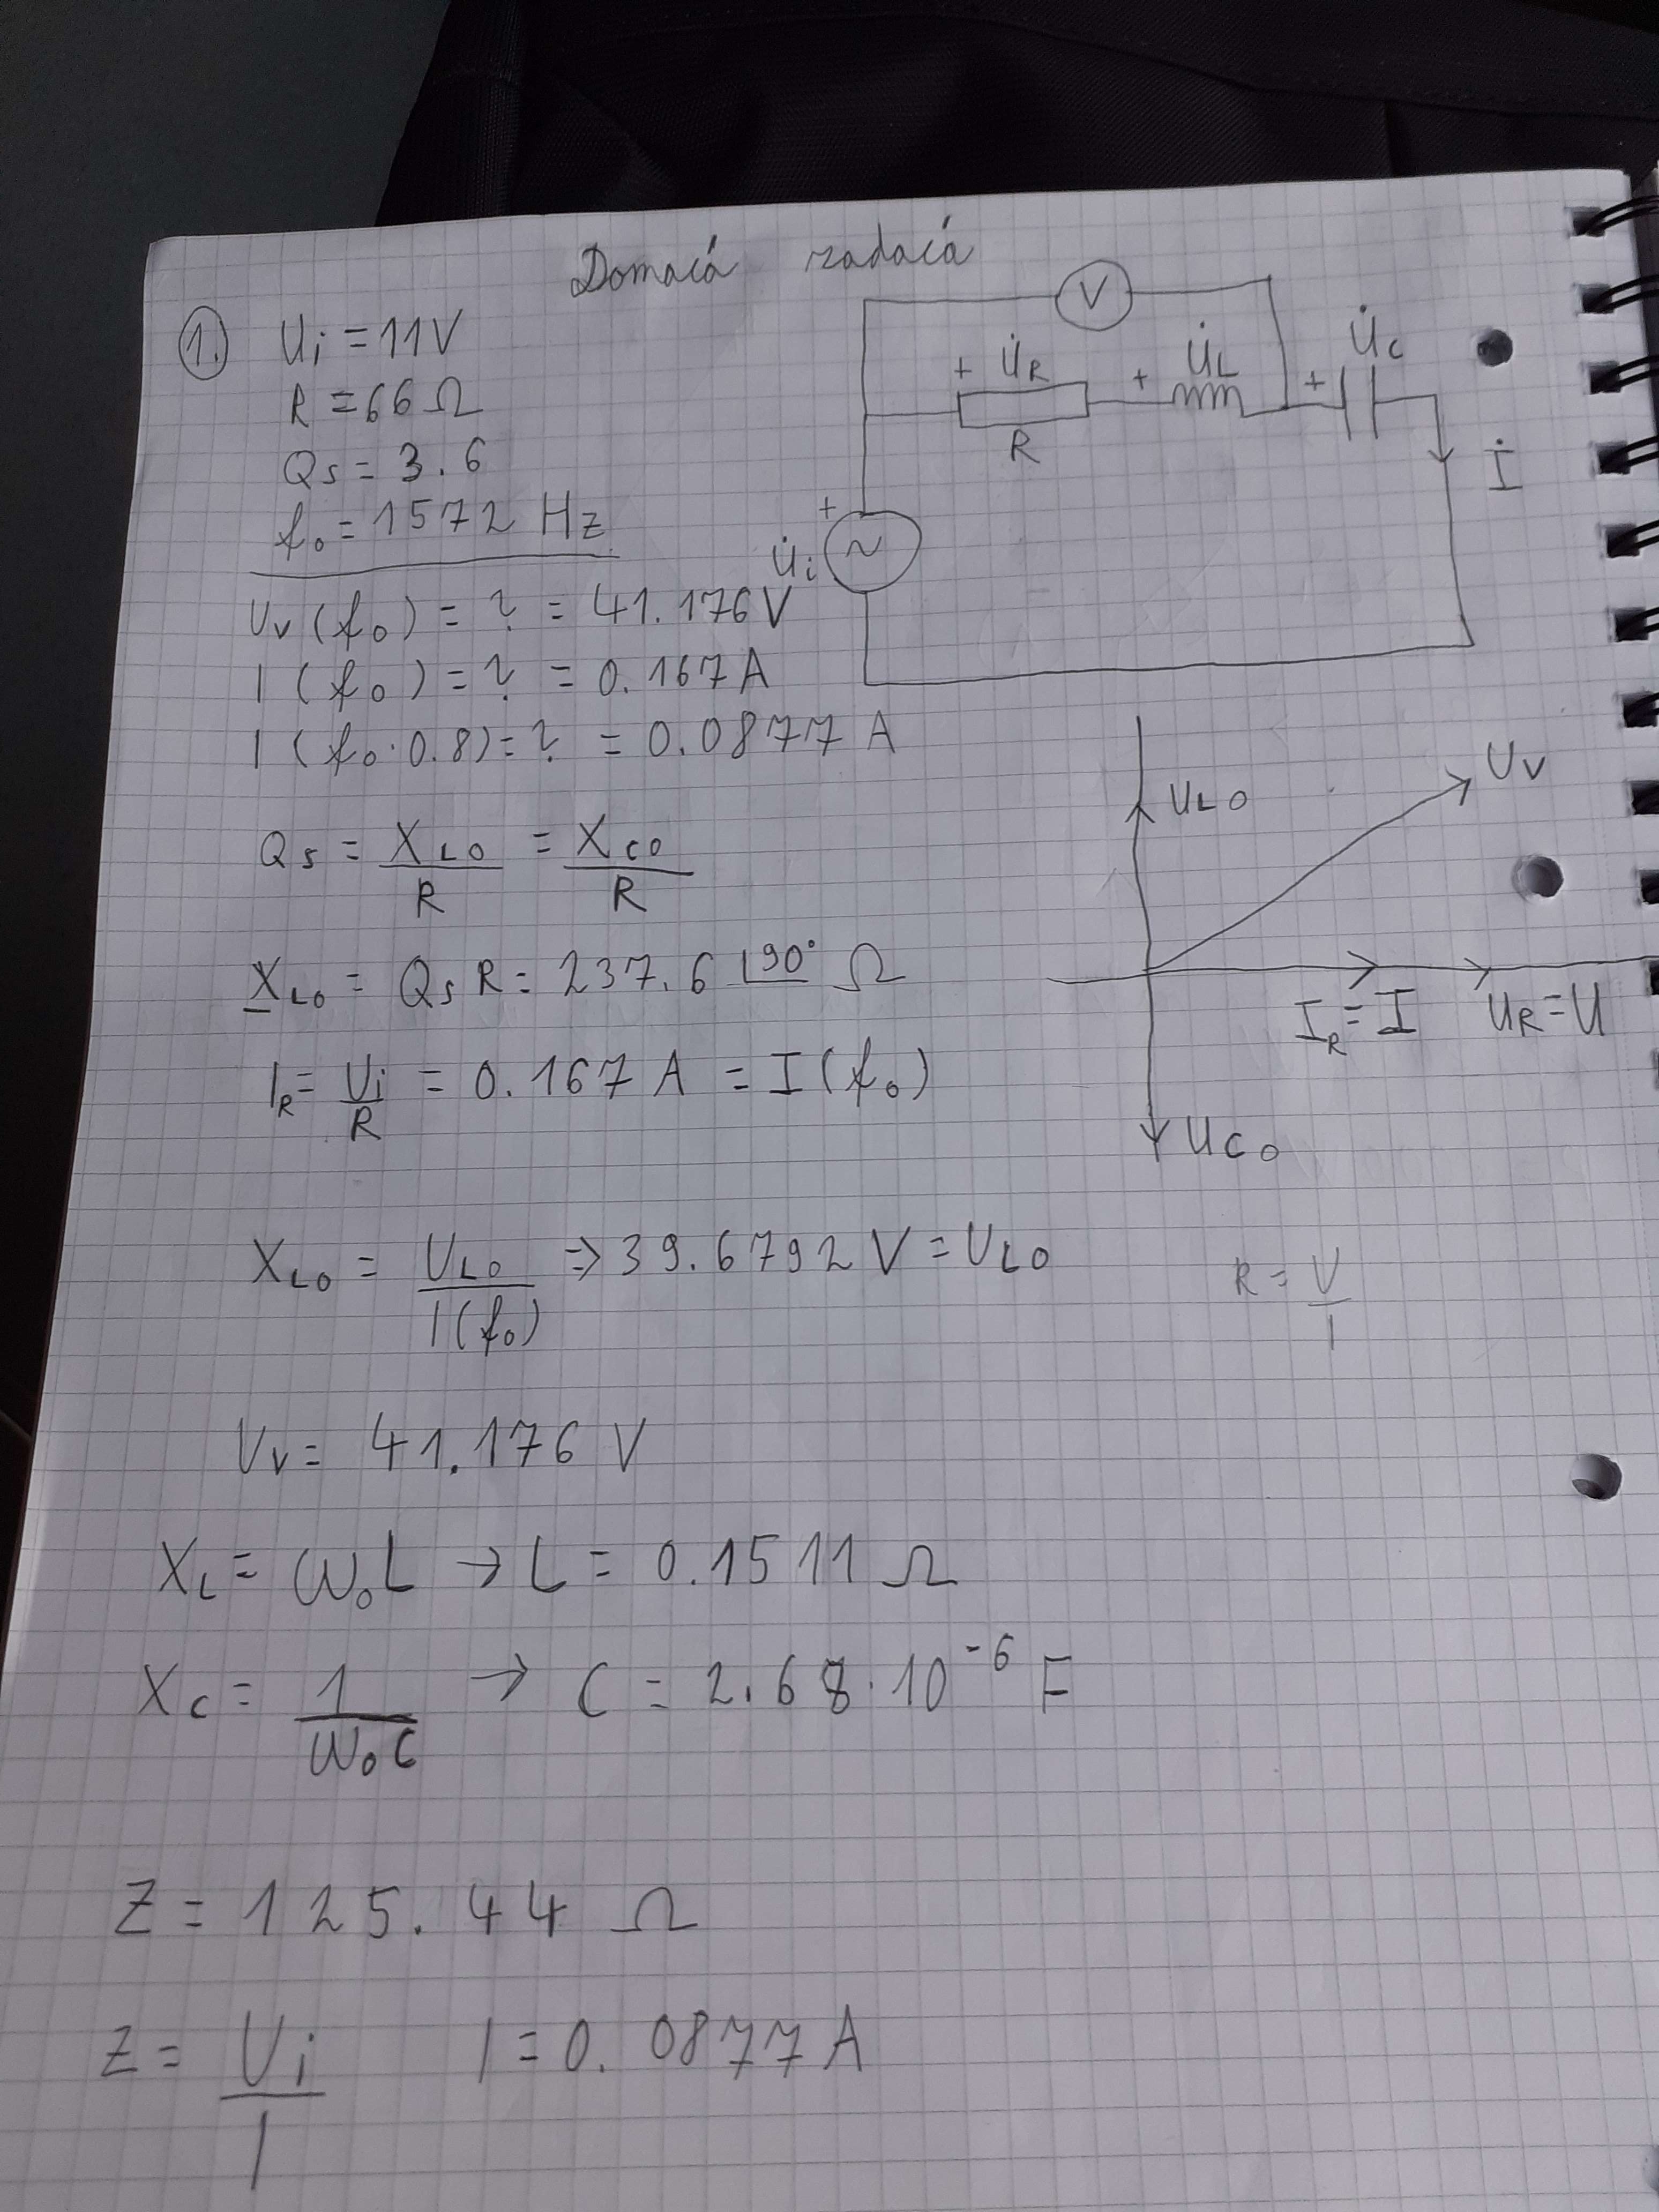 Domaća zadaća
1. Ui = 11V
R = 66 Ω
Qs = 3.6
f0 = 1572 Hz
Uv (f0) = ? = 41.176V
I (f0) = ? = 0.167A
I (f0 · 0.8) = ? = 0.0877 A
V
+ U̇R + U̇L + U̇C
R
İ
+
U̇i ~
Qs = XL0/R = XC0/R
XL0 = Qs R = 237.6 ∟90° Ω
IR = Ui/R = 0.167 A = I (f0)
UL0
Uv
IR = I UR = U
UC0
XL0 = UL0/I(f0) => 39.6792 V = UL0
R = V/I
Uv = 41.176 V
XL = ω0L → L = 0.1511 Ω
XC = 1/ω0C → C = 2.68 · 10⁻⁶ F
Z = 125.44 Ω
Z = Ui/I I = 0.0877A